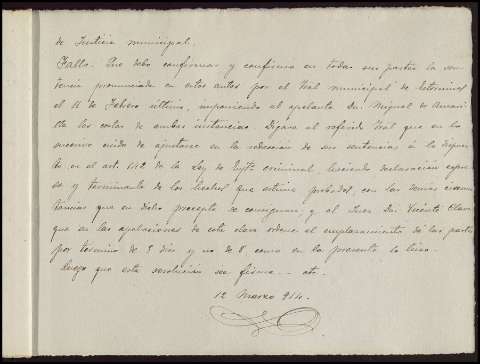 de Justicia municipal.
Fallo. Que debo confirmar y confirmo en todas sus partes la sen-
tencia pronunciada en estos autos por el Tbal municipal de
el 11 de Febrero último, imponiendo al apelante Dn. Miguel de
las costas de ambas instancias. Dígase al referido Tbal que en lo
sucesivo cuide de ajustarse en la redacción de sus sentencias á lo dispues-
to en el art. 142 de la Ley de Enjto criminal, haciendo declaración expre-
sa y terminante de los hechos que estime probados, con las demas circuns-
tancias que en dicho precepto se consignan, y al Juez Dn. Vicente
que en las apelaciones de esta clase ordene el emplazamiento de las partes
por término de 5 días y no de 8 como en la presente lo hizo.
Luego que esta resolución sea firme -- etc.
12 Marzo 914.